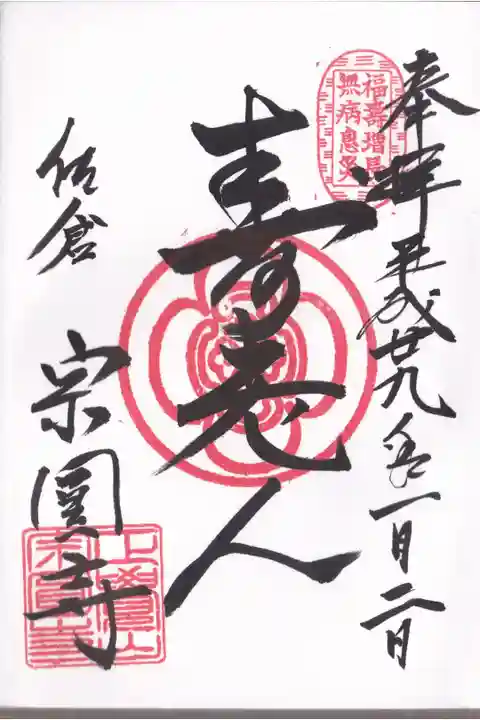 奉拝 平成廿九年一月二日
福壽増長
無病息災
寿老人
佐倉
宗圓寺